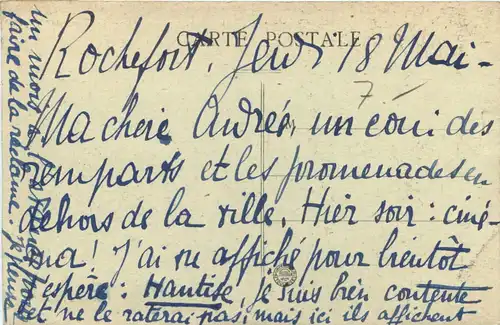 CARTE POSTALE
Rochefort. Jeudi 18 Mai-
7-
Ma chère Andrée, un coin des
remparts et les promenades en
dehors de la ville. Hier soir : ciné-
ma ! J'ai vu affiché pour bientôt
j'espère : Hantise, je suis bien contente
et ne le raterai pas, mais ici ils affichent
un mois
faire de la réclame.